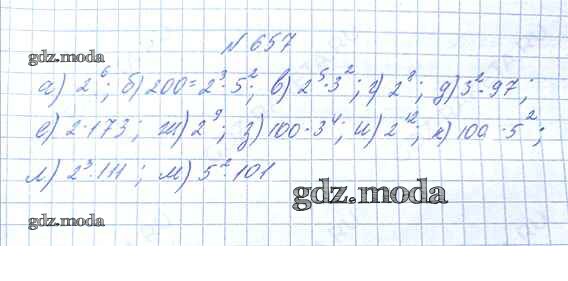 №657
gdz.moda
а) 2⁶; б) 200=2³·5²; в) 2⁵·3²; г) 2⁸; д) 3²·97;
е) 2·173; ж) 2⁹; з) 100·3⁴; и) 2¹²; к) 100·5²;
л) 2³·111; м) 5²·101
gdz.moda
gdz.moda